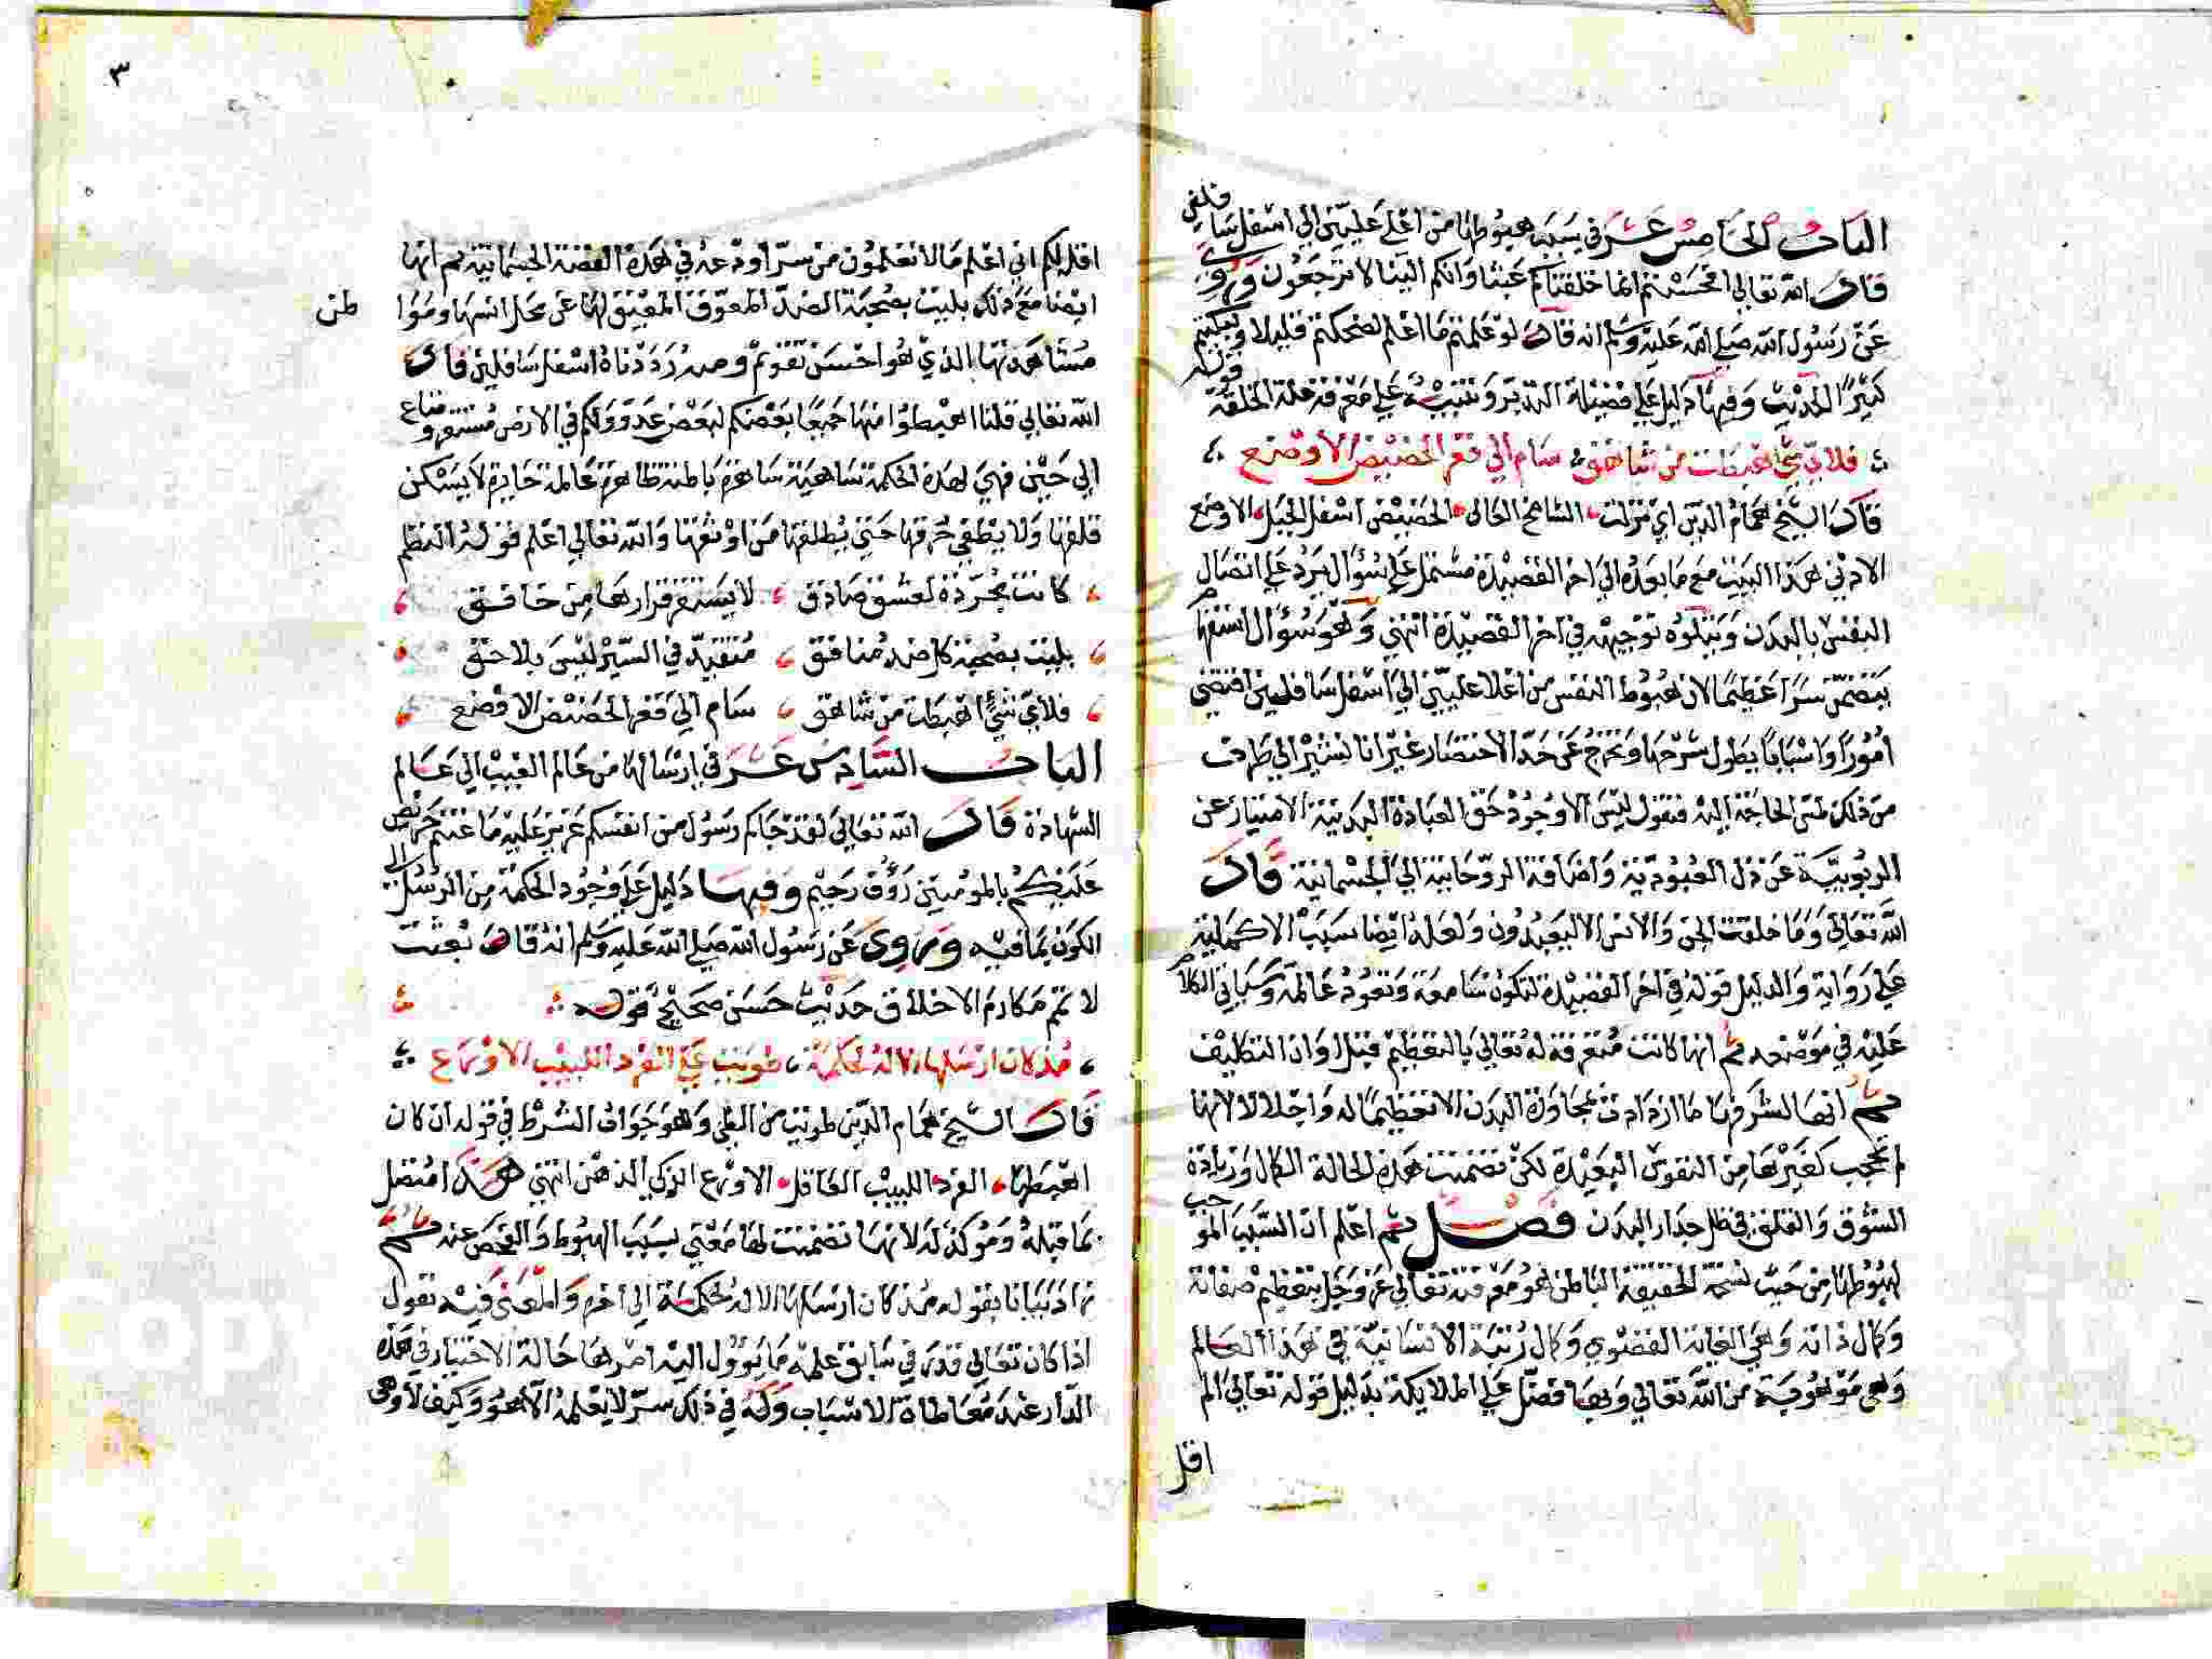 الباب الخامس عشر في سبب هبوطها من اعلى عليين الى اسفل سافلين
قال الله تعالى افحسبتم انما خلقناكم عبثا وانكم الينا لا ترجعون وروي
عن رسول الله صلى الله عليه وسلم انه قال لو علمتم ما اعلم لضحكتم قليلا ولبكيتم
كثيرًا الحديث وفيها دليل على فضيلة التدبر وتنبيه على معرفة علة الخلقة قوله
فلاي شيء اهبطت من شاهق سام الى قعر الحضيض الاوضع
قال الشيخ همام الدين اي نزلت الشامخ العالى الحضيض اسفل الجبل الاوضع
الادنى هذا البيت مع ما بعده الى اخر القصيدة مشتمل على سؤال يرد على اتصال
النفس بالبدن ويتلوه توجيهه في اخر القصيدة انتهى وهو سؤال استفهام
يتضمن سرًا عظيمًا لان هبوط النفس من اعلا عليين الى اسفل سافلين اقتضى
امورًا واسبابًا يطول شرحها وتخرج عن حد الاختصار غير انا نشير الى طرف
من ذلك لمس الحاجة اليه فنقول ليس الا وجود حق العبادة البدنية الامتياز عن
الربوبية عن ذل العبودية واضافة الروحانية الى الجسمانية قال
الله تعالى وما خلقت الجن والانس الا ليعبدون ولعله ايضا سبب الاكملية
على رواية والدليل قوله في اخر القصيدة لتكون سامعة وتعود عالمة وسياتي الكلام
عليه في موضعه ثم انها كانت معترفة له تعالى بالتعظيم قبل اوان التكليف
ثم انها لشرفها ما ازدادت بمجاورة البدن الا تعظيما له واجلالا لانها
لم تحجب كغيرها من النفوس البعيدة لكن تضمنت هذه الحالة الكمال وزيادة
الشوق والقلق في ظل جدار البدن فصل ثم اعلم ان السبب الموجب
لهبوطها من حيث نسخة الحقيقة الباطن هو معرفته تعالى عز وجل بتعظيم صفاته
وكمال ذاته وهي الغاية القصوي وكمال رتبة الانسانية في هذا العالم
وهي موهوبة من الله تعالى وبها فضل على الملائكة بدليل قوله تعالى الم
اقل
٣
اقل لكم اني اعلم ما لا تعلمون من سر اودعه في هذه القصة الجسمانية ثم انها
ايضا مع ذلك بليت بصحبة الضد المعوق المعيق لها عن محل انسها ومواطن
مشاهدتها الذي هو احسن تقويم وصد رددناه اسفل سافلين قال
الله تعالى قلنا اهبطوا منها جميعا بعضكم لبعض عدو ولكم في الارض مستقر ومتاع
الى حين فهي لهذه الحكمة ساهية ساهرة باطنة ظاهرة عالمة حايرة لا يسكن
قلقها ولا يطفي حرقها حتى يطلقها من اوثقها والله تعالى اعلم قوله النظم
كانت مجردة لعشق صادق لا يستقر قرارها من خافق
بليت بصحبة كل ضد منافق متقيد في السير ليس بلاحق
فلاي شيء اهبطت من شاهق سام الى قعر الحضيض الاوضع
الباب السادس عشر في ارسالها من عالم الغيب الى عالم
الشهادة قال الله تعالى لقد جاكم رسول من انفسكم عزيز عليه ما عنتم حريص
عليكم بالمومنين رؤف رحيم وفيها دليل على وجود الحكمة من الرسل الى
الكون بما فيه وروي عن رسول الله صلى الله عليه وسلم انه قال بعثت
لا تمم مكارم الاخلاق حديث حسن صحيح قوله
مذ كان ارسلها الاله لحكمة طويت على الفرد اللبيب الاورع
قال الشيخ همام الدين طويت من الطي وهو جواب الشرط في قوله ان كان
اهبطها الفرد اللبيب العاقل الاورع الزكي الذهن انتهى هذا متصل
بما قبله ومؤكد له لانها تضمنت لها معنى بسبب الهبوط والفحص عنه ثم
زاد بيانا بقوله مذ كان ارسلها الاله لحكمة الى اخره والمعنى فيه نقول
اذا كان تعالى قدر في سابق علمه ما يؤول اليه امرها حالة الاختيار في هذه
الدار عند معاطاة الاسباب وله في ذلك سر لا يعلمه الا هو وكيف لا وهي